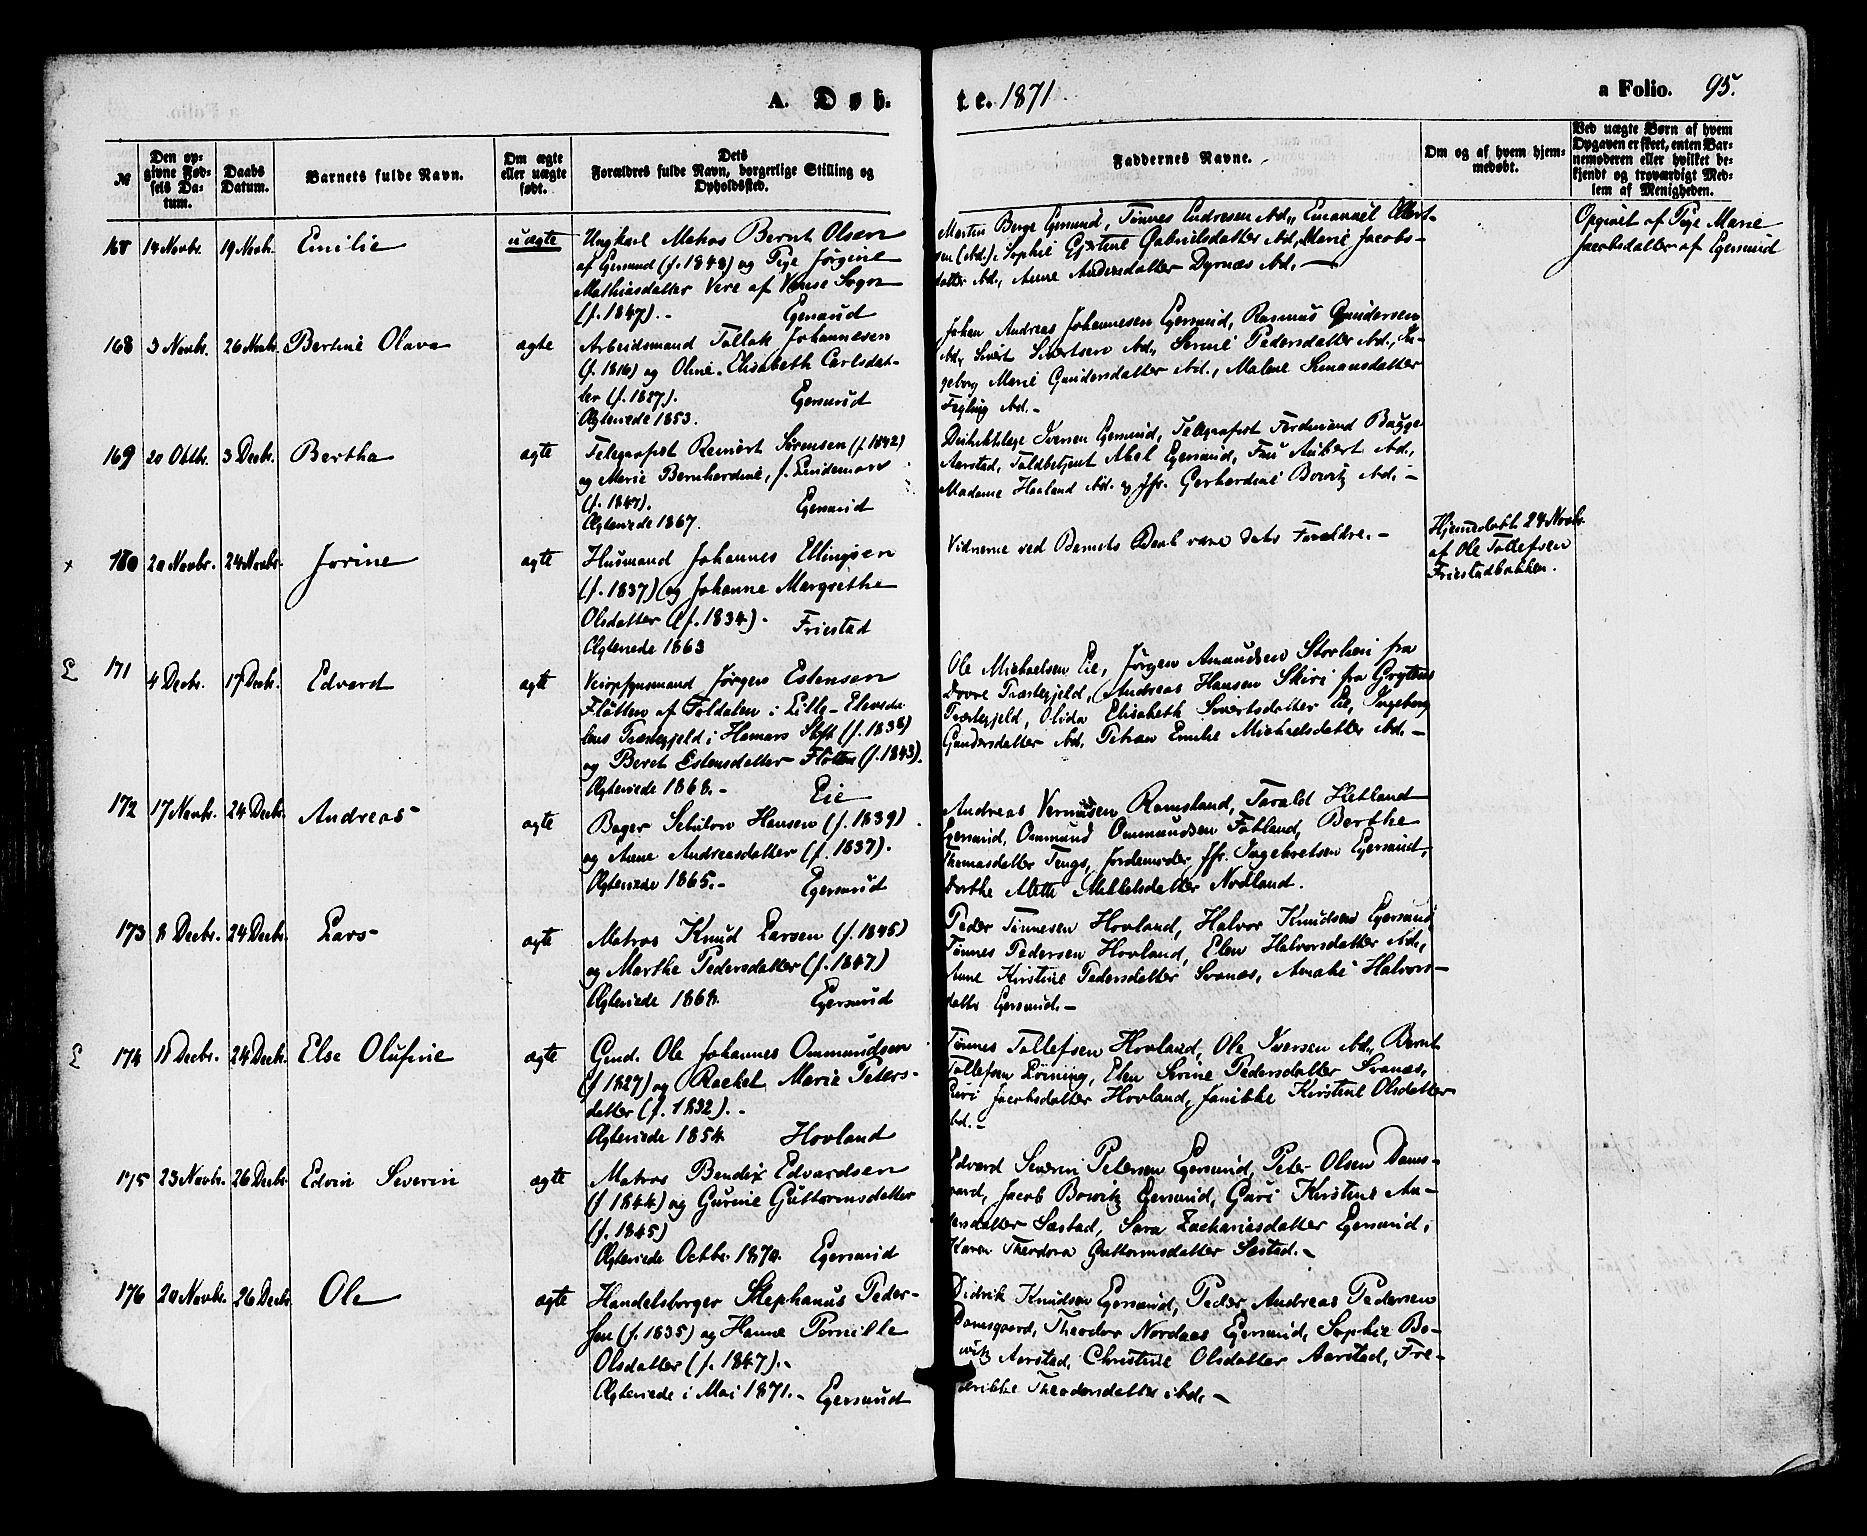 A. Døb-
te. 1871.
a Folio. 95.
№
Den op-
givne Fød-
sels Da-
tum.
Daabs
Datum.
Barnets fulde Navn.
Om ægte
eller uægte
født.
Dets
Forældres fulde Navn, borgerlige Stilling og
Opholdssted.
Faddernes Navne.
Om og af hvem hjem-
medøbt.
Ved uægte Børn af hvem
Opgaven er skeet, enten Bar-
nemoderen eller hvilket be-
kjendt og troværdigt Med-
lem af Menigheden.
168 14 Novbr. 19 Novb. Emilie uægte
Ungkarl Matros Bernt Olsen
af Egersund (f. 1848) og Pige Jørgine
Mathiasdatter Vere af Vanse Sogn
(f. 1847). - Egersund
Martin Berge Egersund, Tønnes Endresen ibd., Emanuel
sen (ibd.), Sophie Gabrielsdatter ibd., Marie Jacobs-
datter ibd., Anne Andersdatter Dyrnæs ibd. -
Opgivet af Pige Marie
Jacobsdatter af Egersund
168 3 Novbr. 26 Novb. Bertine Olava ægte
Arbeidsmand Tollak Johannesen
(f. 1816) og Oline Elisabeth Carlsdat-
ter (f. 1827). Egersund
Ægteviede 1853.
Johan Andreas Johannesen Egersund, Rasmus Gundersen
ibd., Sivert Sivertsen ibd., Serine Pedersdatter ibd., In-
geborg Marie Gundersdatter ibd., Malene Simonsdatter
ibd. -
169 20 Oktb. 3 Decbr. Bertha ægte
Telegrafist Reinert Sørensen (f. 1842)
og Marie Bernhardine, f. Lindeman
(f. 1847). Egersund
Ægteviede 1867.
Distriktslæge Iversen Egersund, Telegrafist Ferdinand Bugge
Aarstad, Toldbetjent Abel Egersund, Fru Aubert ibd.,
Madame Haaland ibd. og Jfr. Gerhardine Bowitz ibd. -
x 180 20 Novbr. 24 Novbr. Jorine ægte
Husmand Johannes Ellingsen
(f. 1837) og Johanne Margrethe
Olsdatter (f. 1834). Friestad
Ægteviede 1863
Vidnerne ved Barnets Daab vare dets Forældre. -
Hjemedøbt 24 Novbr.
af Ole Tollefsen
Friestadbakken.
171 4 Decbr. 17 Decb. Edvard ægte
Veiopsynsmand Jørgen Estensen
Fløtten af Foldalen i Lille-Elvedа-
lens Præstegjeld i Hamars Stift (f. 1838)
og Beret Estensdatter Fløtten (f. 1843).
Ægteviede 1868. - Eie
Ole Michaelsen Eie, Jørgen Amundsen Storlien fra
Dovre Præstegjeld, Andreas Hansen Skiri fra Gryttens
Præstegjeld, Olida Elisabeth Sivertsdatter Eie, Ingeborg
Gundersdatter ibd. Petrea Emilie Michaelsdatter ibd. -
172 17 Novbr. 24 Decbr. Andreas ægte
Bager Sebulon Hansen (f. 1839)
og Anne Andreasdatter (f. 1837).
Ægteviede 1865. - Egersund
Andreas Ramsland, Tarald Hetland
Egersund, Ommund Ommundsen Fotland, Berthe
Thomasdatter Tengs, Jordemoder Jfr. Ingebretsen Egersund,
Dorthe Mette Mikkelsdatter Nodland.
173 8 Decbr. 24 Decbr. Lars ægte
Matros Knud Larsen (f. 1845)
og Marthe Pedersdatter (f. 1847)
Ægteviede 1868. Egersund
Peder Tønnesen Hovland, Halvor Knudsen Egersund,
Tønnes Pedersen Hovland, Elen Halvorsdatter ibd.,
Anne Kirstine Pedersdatter Svanæs, Amalie Halvors-
datter Egersund. -
174 18 Decbr. 24 Decb. Else Olufine ægte
Gmd. Ole Johannes Ommundsen
(f 1827) og Rachel Marie Peters-
datter (f. 1832). -
Ægteviede 1854 Hovland
Tønnes Tollefsen Hovland, Ole Iversen ibd., Bernt
Tollefsen Lørning, Elen Serine Pedersdatter Svanæs,
Guri Jacobsdatter Hovland, Janikke Kirstine Olsdatter
ibd. -
175 23 Novbr. 26 Decbr. Edvin Severin ægte
Matros Bendix Edvardsen
(f 1844) og Gurine Guttormsdatter
(f. 1845)
Ægteviede Octbr. 1870. Egersund
Edvard Severin Petersen Egersund, Peter Olsen Dams-
gaard, Jacob Bowitz Egersund, Guri Kirstine An-
dersdatter Sæstad, Sara Zachariasdatter Egersund,
Karen Theodora Guttormsdatter Sæstad. -
176 20 Novbr. 26 Decbr. Ole ægte
Handelsborger Stephanus Peder-
sen (f. 1835) og Hanne Pernille
Olsdatter (f. 1847). -
Ægteviede i Mai 1871. - Egersund
Didrik Knudsen Egersund, Peder Andreas Pedersen
Damsgaard, Theodor Nordaas Egersund, Sophie Bo-
witz Aarstad, Christine Olsdatter Aarstad, Fre-
drikke Theodorsdatter ibd. -